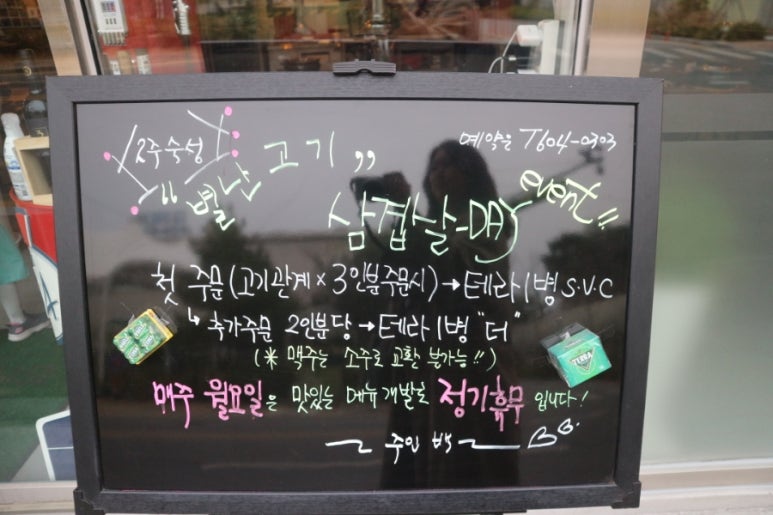 2주숙성
"별난 고기,,
예약은 T604-0303
삼겹살-DAY event!!
첫 주문(고기관계×3인분주문시)→테라1병 S.V.C
↳ 추가주문 2인분당→테라1병 "더"
(※ 맥주는 소주로 교환 불가능!!)
매주 월요일은 맛있는 메뉴개발로 정기휴무 입니다!
~ 주인 백 ~
TERRA